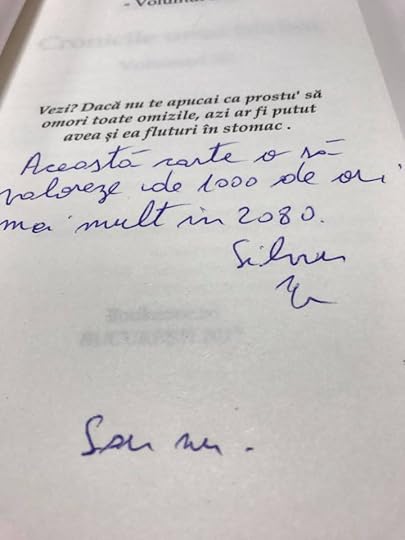 - Volumul
Vezi? Dacă nu te apucai ca prostu' să
omori toate omizile, azi ar fi putut
avea și ea fluturi în stomac .
Această carte o să
valoreze de 1000 de ori
mai mult în 2080.
Sau nu.